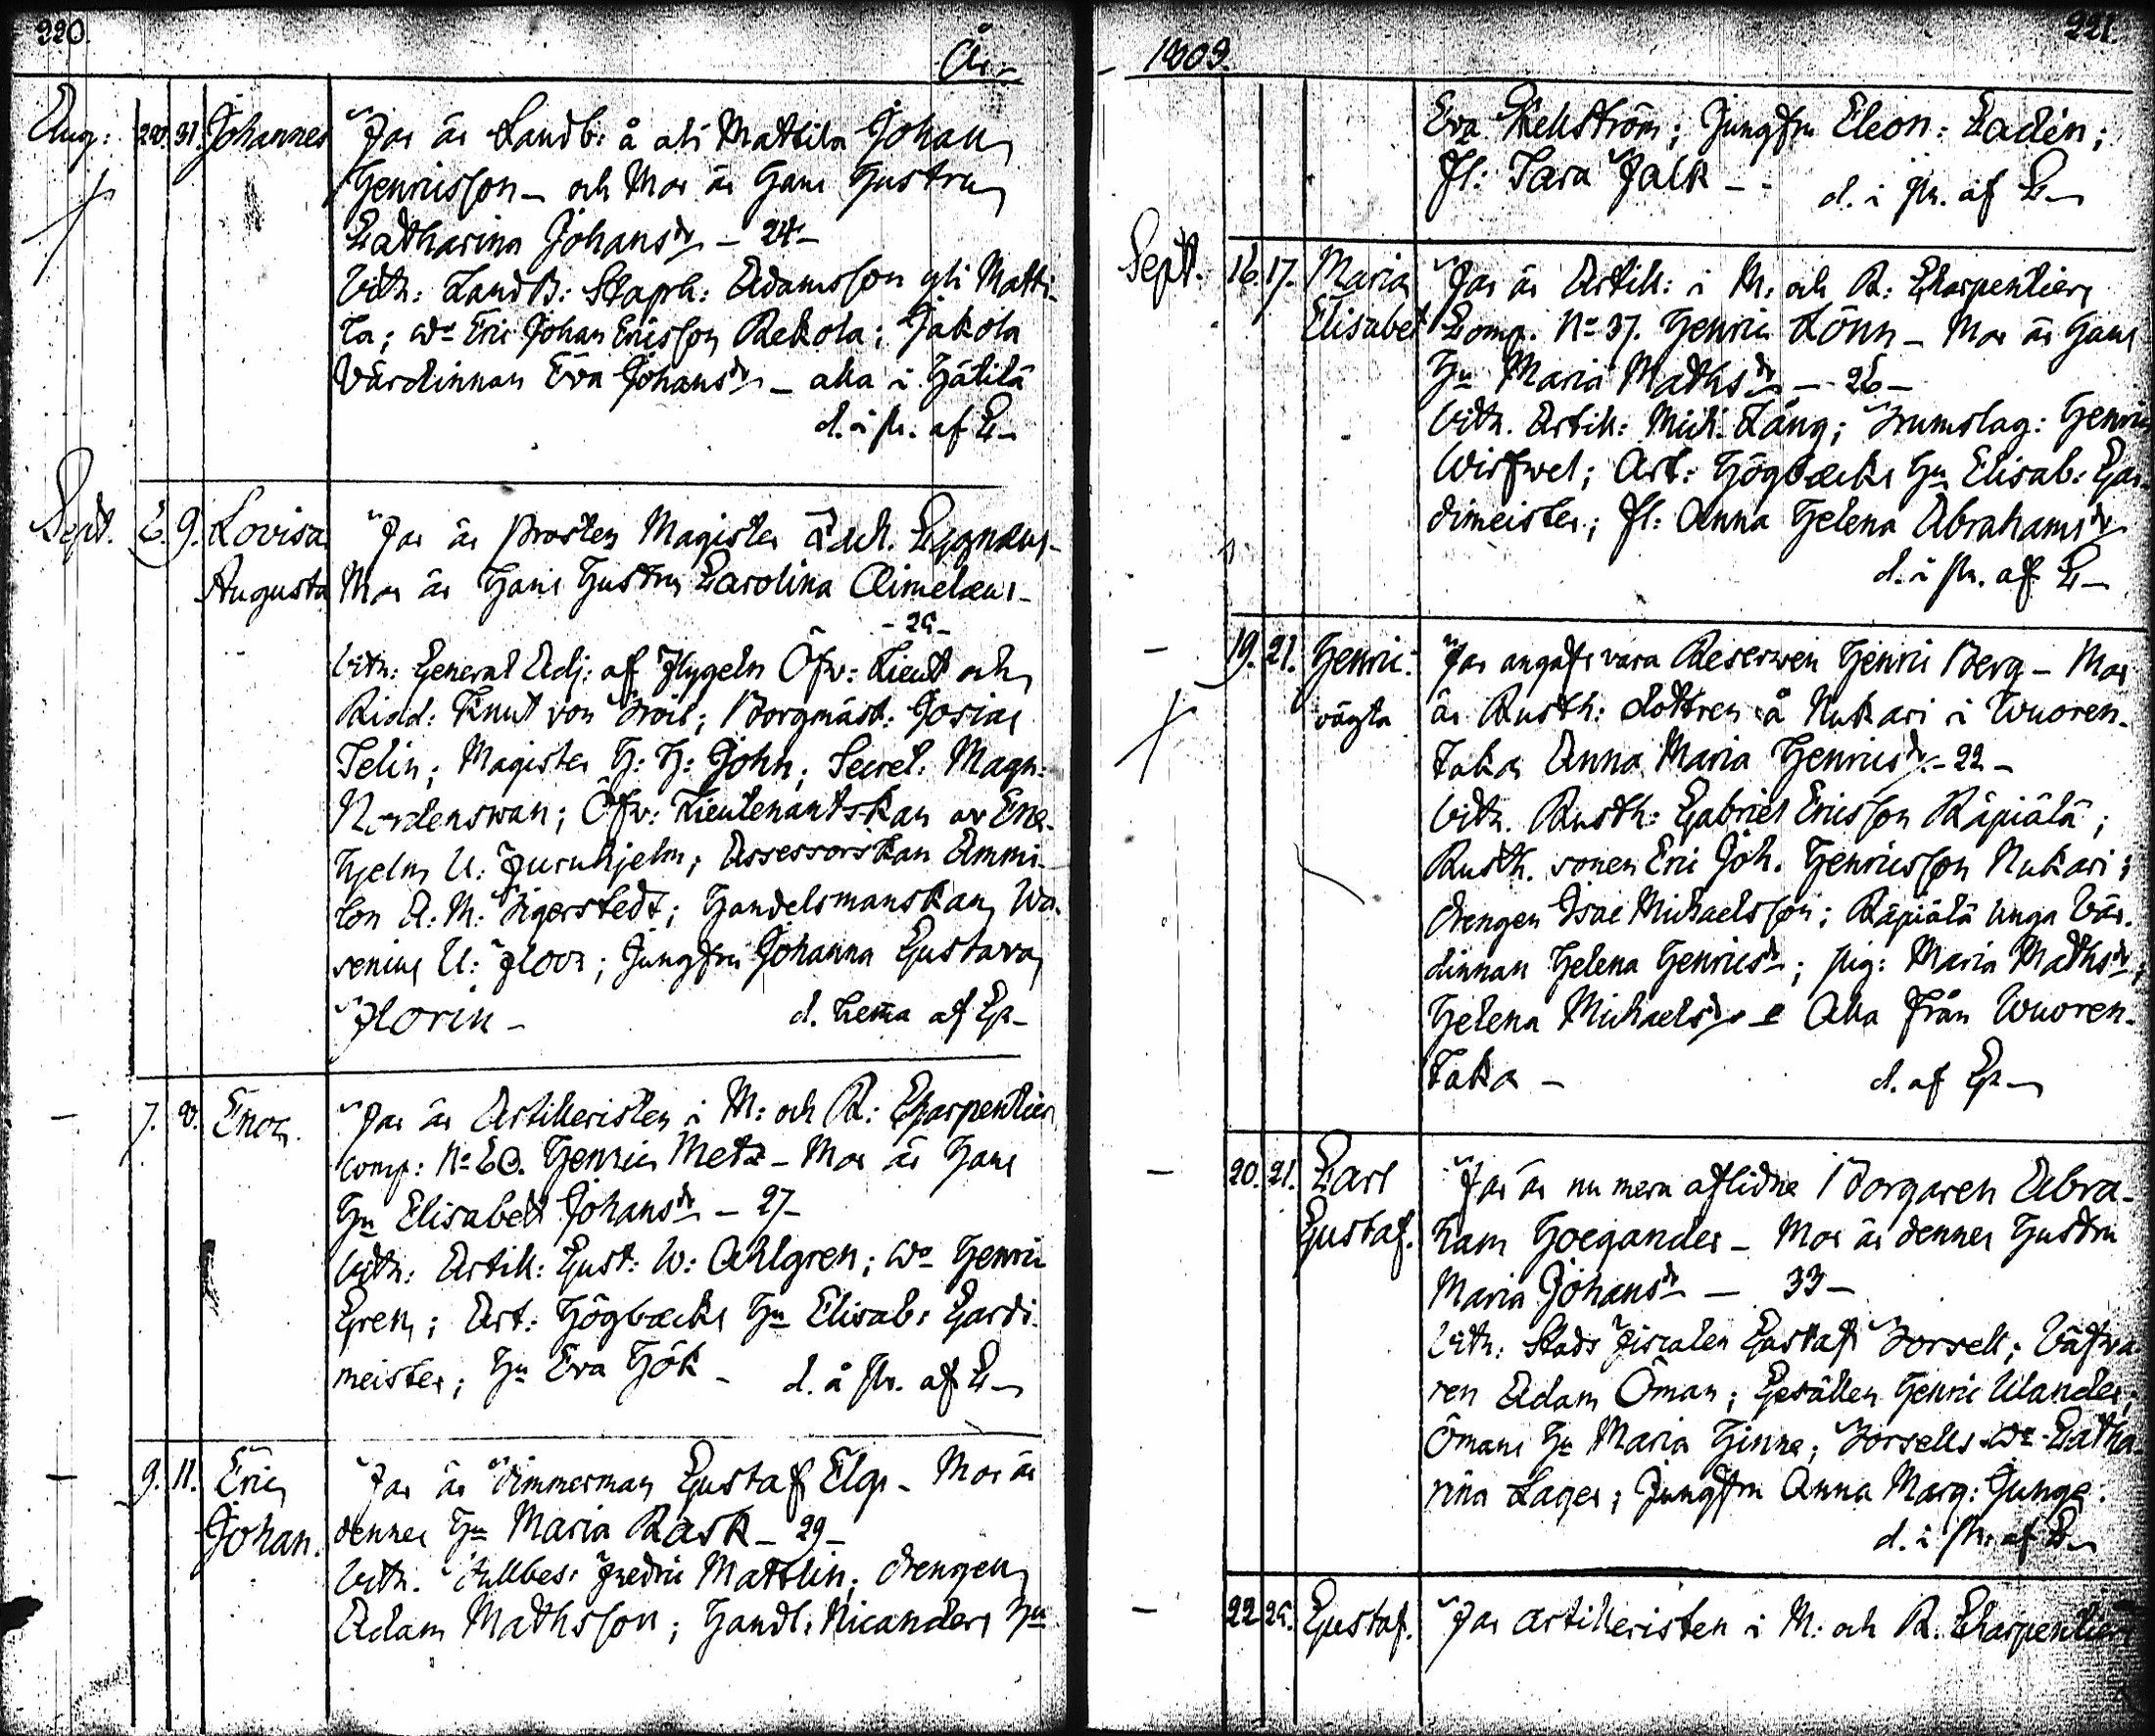 220.
År
Aug: 28. 31. Johannes Far är Landb: å ali Mattila Johan
Henricsson - och Mor är Hans Hustru
Catharina Johansdr - 24 -
Vitn: Landb: Staph: Adamsson yli Matti-
la; Do Eric Johan Ericsson Rekola; Jakola
Värdinnan Eva Johansdr - alla i Hätilä
d. i k. af C-
Sept. 6. 9. Lovisa Far är Prosten Magister Zach. Cygnæus -
Augusta Mor är Hans Hustru Carolina Aimelæus -
- 25 -
Vitn: General Adj: af Flygeln Öfv: Lieut och
Ridd: Knut von Troil; Borgmäst: Josias
Selin; Magister H: H: John; Secret: Magn:
Nordenswan; Öfv: Lieutenantskan av Ene-
hjelm U: Furuhjelm; Assessorskan Ammi-
lon A: M: Tigerstedt; Handelsmanskan Wa-
senius U: Floor; Jungfru Johanna Gustava
Florin - d. hema af Gr-
- 7. 8. Enoc. Far är Artilleristen i M: och R: Charpentiers
comp: No 60. Henric Metz - Mor är Hans
Hu Elisabet Johansdr - 27 -
Vitn: Artill: Gust: W: Ahlgren; Do Henric
Gren; Art: Högbäcks Hu Elisab: Gardi-
meister; Hu Eva Hök - d. å k. af C-
- 9. 11. Eric Far är Timmerman Gustaf Elg - Mor är
Johan. dennes Hu Maria Rask - 29 -
Vitn. Tullbes: Fredric Mattlin; drengen
Adam Mathsson; Handl: Nicanders Hu
221.
1809.
Eva Hellström; Jungfru Eleon: Ladén;
Fl: Sara Falk - d. i k. af C-
Sept. 16. 17. Maria Far är Artill: i M: och R: Charpentiers
Elisabet Comp. No 37. Henric Lönn - Mor är Hans
Hu Maria Mathsdr - 26 -
Vitn. Artill: Mich: Lång; Trumslag: Henric
Wirfwel; Art: Högbäcks Hu Elisab: Gar-
dimeister; Fl: Anna Helena Abrahamsdr
d. i k. af C-
- 19. 21. Henric Far angafs vara Reserven Henric Berg - Mor
oägta är Rusth: dottren å Nukari i Wuoren-
taka Anna Maria Henricsdr - 22 -
Vitn. Rusth: Gabriel Ericsson Räpiälä;
Rusth. sonen Eric Joh. Henricsson Nukari;
drengen Isac Michaelsson; Räpiälä unga Vär-
dinnan Helena Henricsdr; pig: Maria Mathsdr;
Helena Michaelsdr - Alla från Wuoren-
taka - d. af Gr-
- 20. 21. Carl Far är nu mera aflidne Borgaren Abra-
Gustaf. ham Hoegander - Mor är dennes Hustru
Maria Johansdr - 33 -
Vitn: Stads Fiscalen Gustaf Forsell; Väfva-
ren Adam Öman; Gesällen Henric Ulander;
Ömans Hu Maria Hinne; Forsells Do Catha-
rina Lager; Jungfru Anna Marg: Junge.
d. i k. af C-
- 22. 25. Gustaf. Far Artilleristen i M: och R: Charpentiers